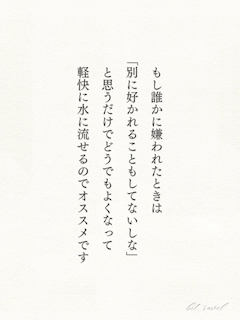 もし誰かに嫌われたときは
「別に好かれることもしてないしな」
と思うだけでどうでもよくなって
軽快に水に流せるのでオススメです